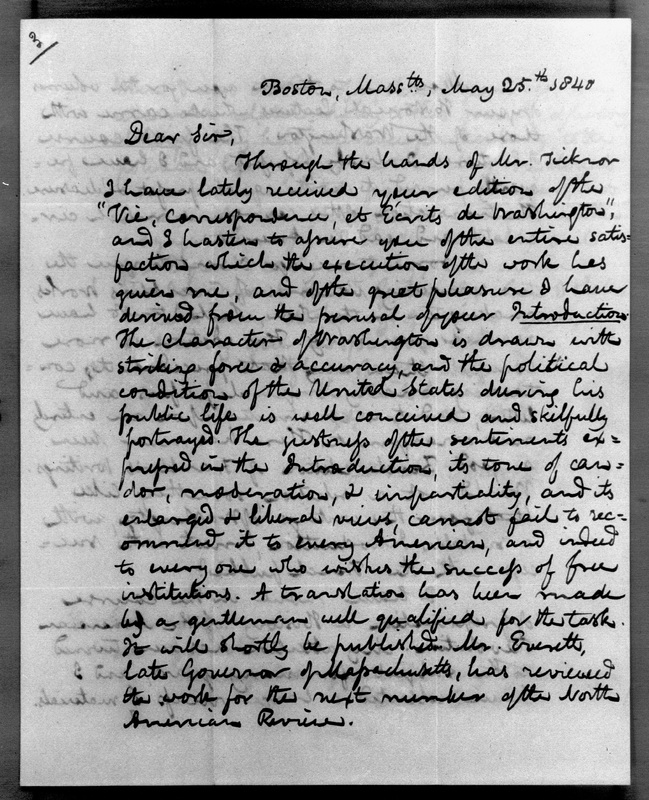 Boston, Mass.tts, May 25.th 1840
Dear Sir,
Through the hands of Mr. Ticknor
I have lately received your edition of the
"Vie, Correspondence, et Écrits de Washington",
and I hasten to assure you of the entire satis=
faction which the execution of the work has
given me, and of the great pleasure I have
derived from the perusal of your Introduction.
The character of Washington is drawn with
striking force & accuracy, and the political
condition of the United States during his
public life is well conceived and skilfully
portrayed. The justness of the sentiments ex=
pressed in the Introduction, its tone of can=
dor, moderation, & impartiality, and its
enlarged & liberal views, cannot fail to rec=
ommend it to every American, and indeed
to every one who wishes the success of free
institutions. A translation has been made
by a gentleman well qualified for the task.
It will shortly be published. Mr. Everett,
late Governor of Massachusetts, has reviewed
the work for the next number of the North
American Review.